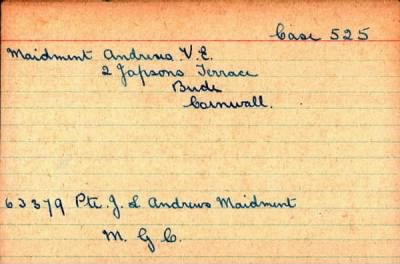 Case 525
Maidment Andrews V.E.
2 Japsons Terrace
Bude
Cornwall.
63379 Pte. J. L Andrews Maidment
M. G C.